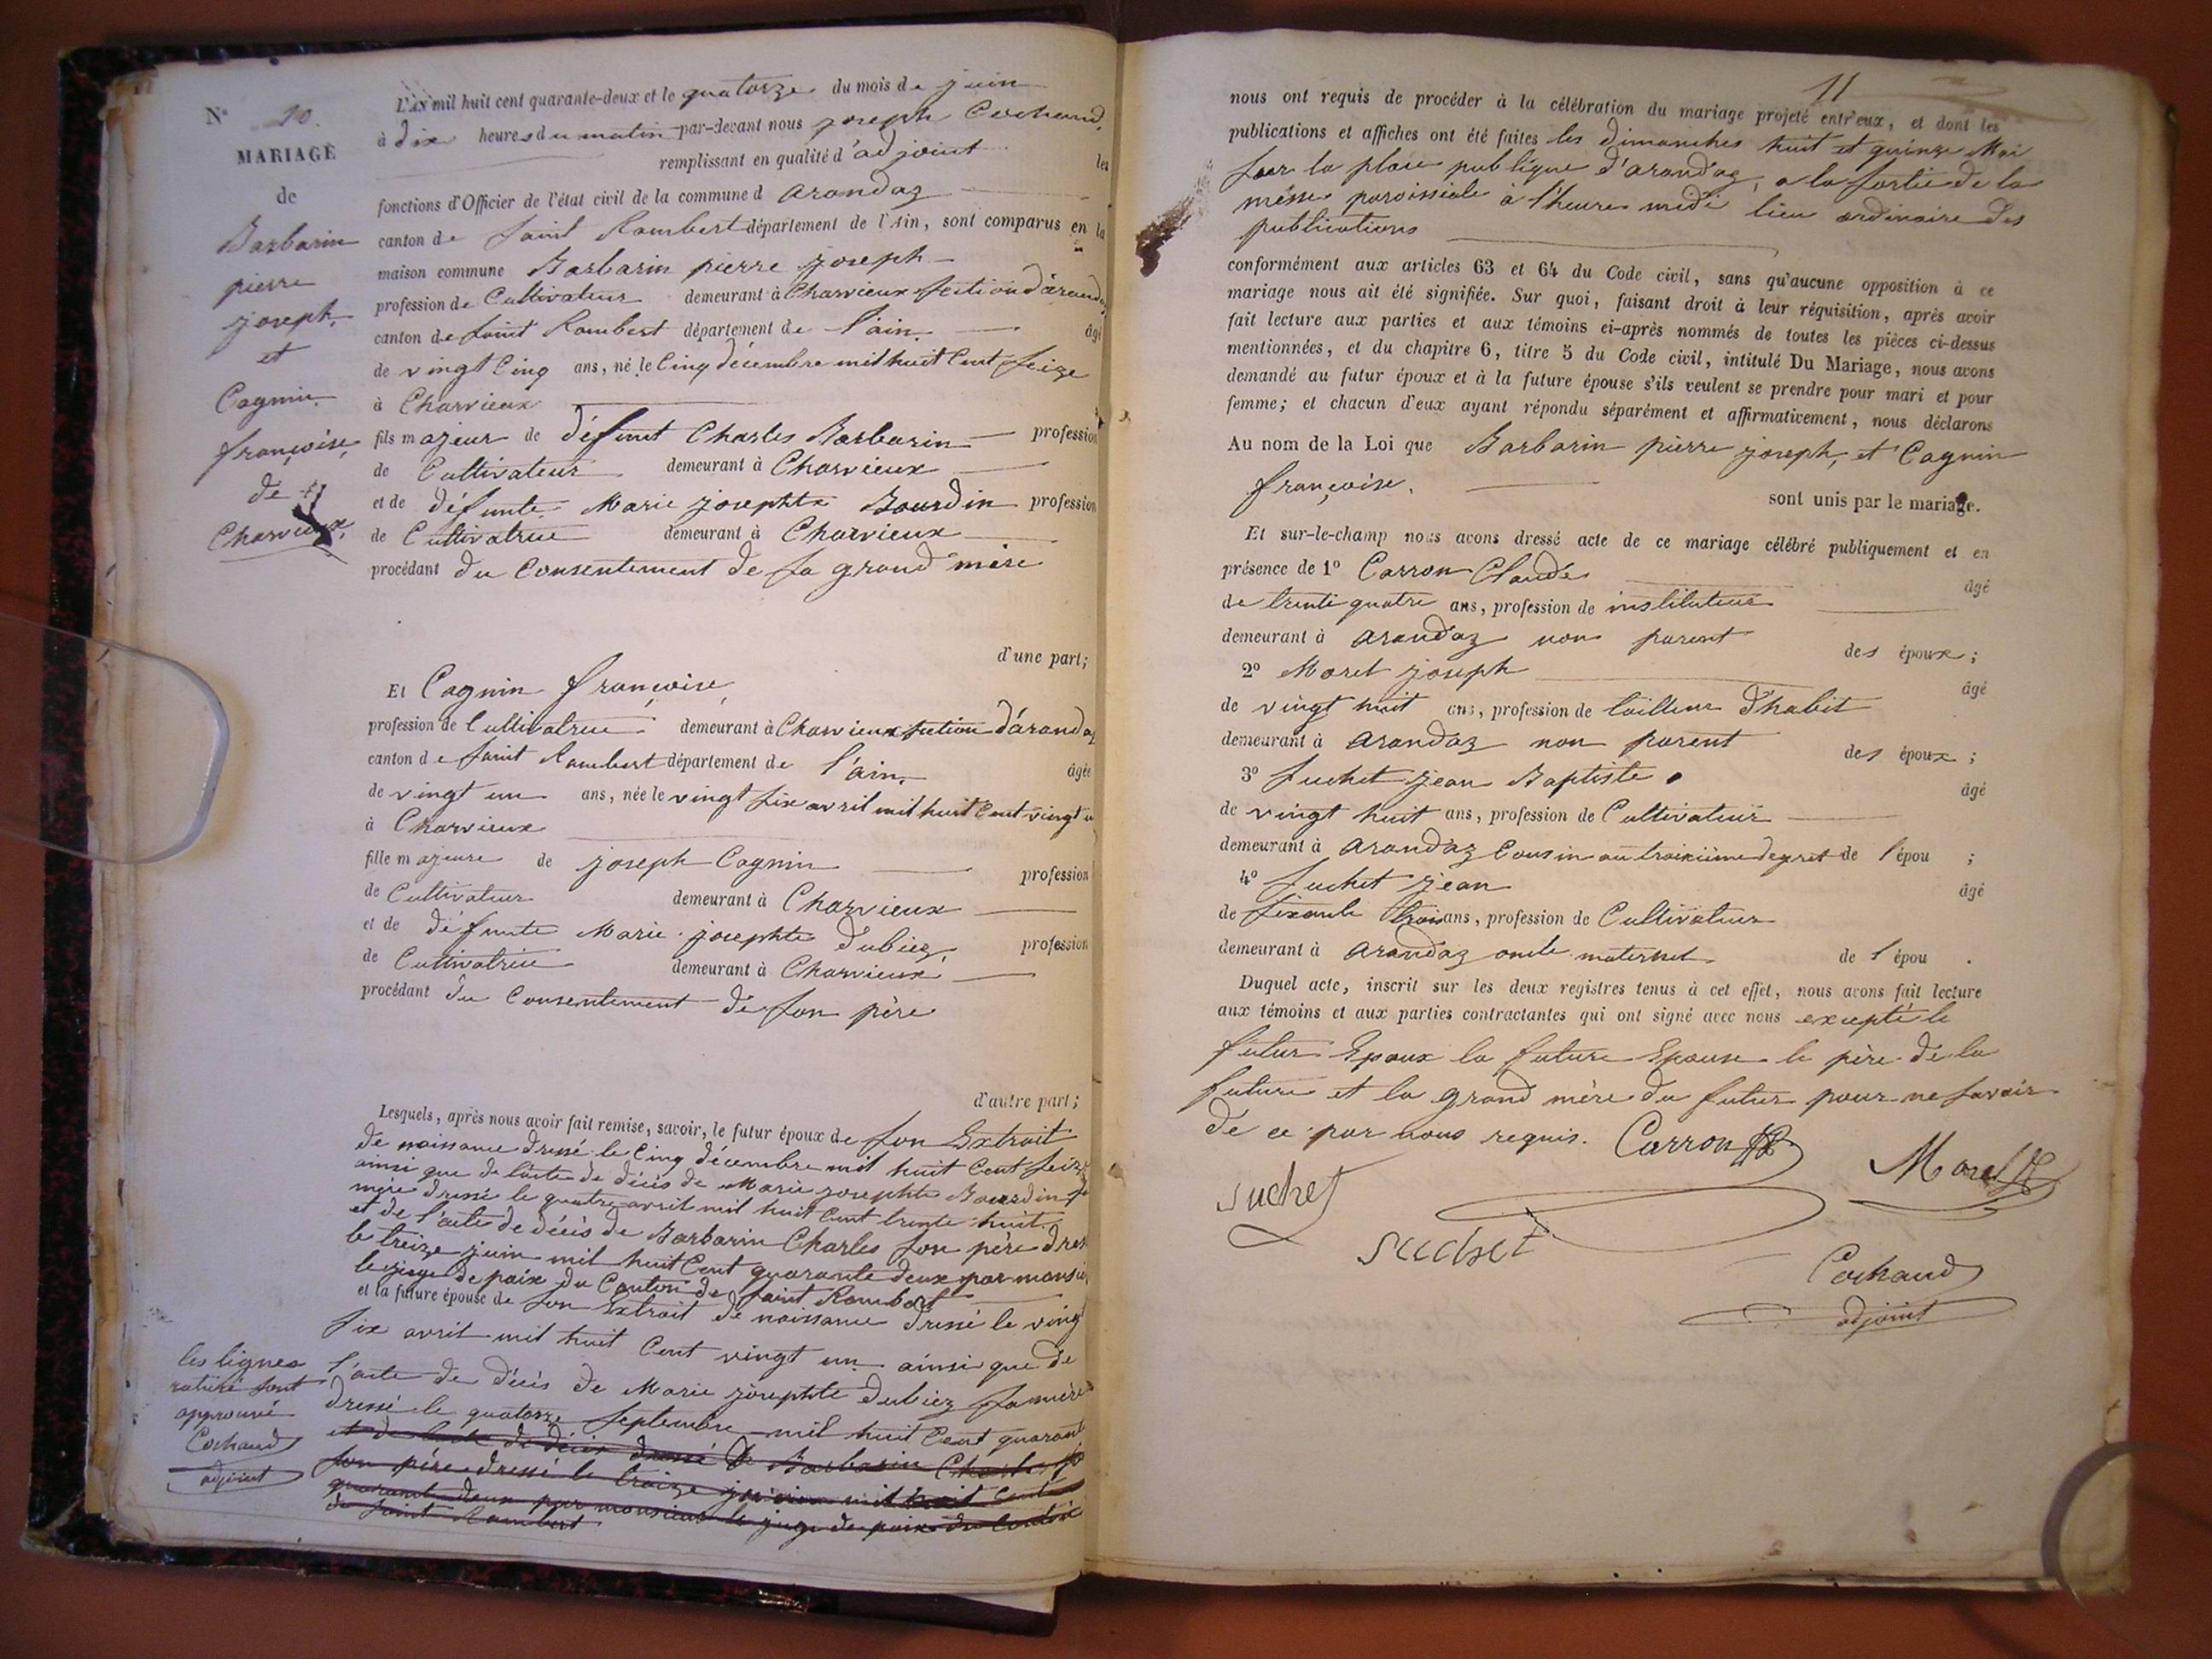 N° 10.
MARIAGE
de
Barbarin
pierre
joseph,
et
Cognin
françoise,
de
Charvieux.
L'an mil huit cent quarante-deux et le quatorze du mois de juin
à dix heures du matin par-devant nous joseph Cochaud,
remplissant en qualité d'adjoint les
fonctions d'Officier de l'état civil de la commune d arandaz
canton de saint Rambert département de l'Ain, sont comparus en la
maison commune Barbarin pierre joseph
profession de Cultivateur demeurant à Charvieux section d'arandaz
canton de saint Rambert département de l'ain. âgé
de vingt Cinq ans, né le Cinq décembre mil huit Cent seize
à Charvieux
fils majeur de défunt Charles Barbarin profession
de Cultivateur demeurant à Charvieux
et de défunte Marie josephte Bourdin profession
de Cultivatrice demeurant à Charvieux
procédant du Consentement de sa grand mère
d'une part;
Et Cognin françoise,
profession de Cultivatrice demeurant à Charvieux section d'arandaz
canton de saint Rambert département de l'ain. âgée
de vingt un ans, née le vingt six avril mil huit Cent vingt u
à Charvieux
fille majeure de joseph Cognin profession
de Cultivateur demeurant à Charvieux
et de défunte Marie josephte Dubiez, profession
de Cultivatrice demeurant à Charvieux,
procédant du Consentement de son père
d'autre part;
Lesquels, après nous avoir fait remise, savoir, le futur époux de son Extrait
de naissance dressé le Cinq décembre mil huit Cent seize
ainsi que de l'acte de décès de Marie josephte Bourdin sa
mère dressé le quatre avril mil huit Cent trente huit.
et de l'acte de décès de Barbarin Charles son père dres
le treize juin mil huit Cent quarante deux par monsie
le juge de paix du Canton de saint Rambert
et la future épouse de son Extrait de naissance dressé le vingt
six avril mil huit Cent vingt un ainsi que de
l'acte de décès de Marie josephte Dubiez sa mère
dressé le quatorze septembre mil huit Cent quarant
et de l'acte de décès dressé de Barbarin Charles
son père dressé le treize juin mil huit Cent
quarante deux par monsieur le juge de paix du Canton
de saint Rambert
les lignes
raturé sont
approuvé
Cochaud
adjoint
11
nous ont requis de procéder à la célébration du mariage projeté entr'eux, et dont les
publications et affiches ont été faites les dimanches huit et quinze Mai
sur la place publique d'arandaz, a la sortie de la
messe paroissiale à l'heure midi lieu ordinaire des
publications
conformément aux articles 63 et 64 du Code civil, sans qu'aucune opposition à ce
mariage nous ait été signifiée. Sur quoi, faisant droit à leur réquisition, après avoir
fait lecture aux parties et aux témoins ci-après nommés de toutes les pièces ci-dessus
mentionnées, et du chapitre 6, titre 5 du Code civil, intitulé Du Mariage, nous avons
demandé au futur époux et à la future épouse s'ils veulent se prendre pour mari et pour
femme; et chacun d'eux ayant répondu séparément et affirmativement, nous déclarons
Au nom de la Loi que Barbarin pierre joseph, et Cognin
françoise.
sont unis par le mariage.
Et sur-le-champ nous avons dressé acte de ce mariage célébré publiquement et en
présence de 1° Carron Claude âgé
de trente quatre ans, profession de instituteur
demeurant à arandaz non parent des époux;
2° Morel joseph âgé
de vingt huit ans, profession de tailleur d'habit
demeurant à arandaz non parent des époux;
3° suchet jean Baptiste âgé
de vingt huit ans, profession de Cultivateur
demeurant à arandaz Cousin au troisième degret de l'épou ;
4° suchet jean âgé
de sixante trois ans, profession de Cultivateur
demeurant à arandaz oncle maternel de l'épou .
Duquel acte, inscrit sur les deux registres tenus à cet effet, nous avons fait lecture
aux témoins et aux parties contractantes qui ont signé avec nous excepté le
futur Epoux la future Epouse le père de la
future et la grand mère du futur pour ne savoir
de ce par nous requis. Carron
Morel
suchet
suchet
Cochaud
adjoint